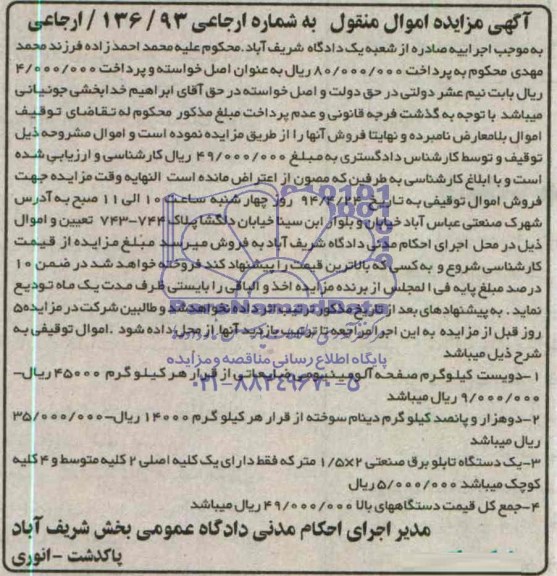 آگهی مزایده اموال منقول به شماره ارجاعی ۹۳ / ۱۳۶ / ارجاعی
به موجب اجراییه صادره از شعبه یک دادگاه شریف آباد.محکوم علیه محمد احمدزاده فرزند محمد
مهدی محکوم به پرداخت ۸۰/۰۰۰/۰۰۰ ریال به عنوان اصل خواسته و پرداخت ۴/۰۰۰/۰۰۰
ریال بابت نیم عشر دولتی در حق دولت و اصل خواسته در حق آقای ابراهیم خدابخشی جونیانی
میباشد با توجه به گذشت فرجه قانونی و عدم پرداخت مبلغ مذکور محکوم له تقاضای توقیف
اموال بلامعارض نامبرده و نهایتا فروش آنها را از طریق مزایده نموده است و اموال مشروحه ذیل
توقیف و توسط کارشناس دادگستری به مبلغ ۴۹/۰۰۰/۰۰۰ ریال کارشناسی و ارزیابی شده
است و با ابلاغ کارشناسی به طرفین که مصون از اعتراض مانده است النهایه وقت مزایده جهت
فروش اموال توقیفی به تاریخ ۹۴/۴/۲۴ روز چهارشنبه ساعت ۱۰ الی ۱۱ صبح به آدرس
شهرک صنعتی عباس آباد خیابان و بلوار ابن سینا خیابان دلگشا پلاک ۷۴۴-۷۴۳ تعیین و اموال
ذیل در محل اجرای احکام مدنی دادگاه شریف آباد به فروش میرسد مبلغ مزایده از قیمت
کارشناسی شروع و به کسی که بالاترین قیمت را پیشنهاد کند فروخته خواهد شد در ضمن ۱۰
درصد مبلغ پایه فی المجلس از برنده مزایده اخذ و الباقی را بایستی ظرف مدت یک ماه تودیع
نماید . به پیشنهادهای بعد از تاریخ مذکور ترتیب اثر داده نخواهد شد و طالبین شرکت در مزایده ۵
روز قبل از مزایده به این اجرا مراجعه تا ترتیب بازدید آنها از محل داده شود .اموال توقیفی به
شرح ذیل میباشد
پایگاه اطلاع رسانی مناقصه و مزایده
۱-دویست کیلوگرم صفحه آلومینیومی ضایعاتی از قرار هر کیلو گرم ۴۵۰۰۰ ریال-
۰۲۱-۸۸۳۴۹۶۷۰-۵
۹/۰۰۰/۰۰۰ ریال میباشد
۲-دوهزار و پانصد کیلو گرم دینام سوخته از قرار هر کیلو گرم ۱۴۰۰۰ ریال-۳۵/۰۰۰/۰۰۰
ریال میباشد
۳-یک دستگاه تابلو برق صنعتی ۲×۱/۵ متر که فقط دارای یک کلیه اصلی ۲ کلیه متوسط و ۴ کلیه
کوچک میباشد ۵/۰۰۰/۰۰۰ ریال
۴-جمع کل قیمت دستگاههای بالا ۴۹/۰۰۰/۰۰۰ ریال میباشد
مدیر اجرای احکام مدنی دادگاه عمومی بخش شریف آباد
پاکدشت -انوری